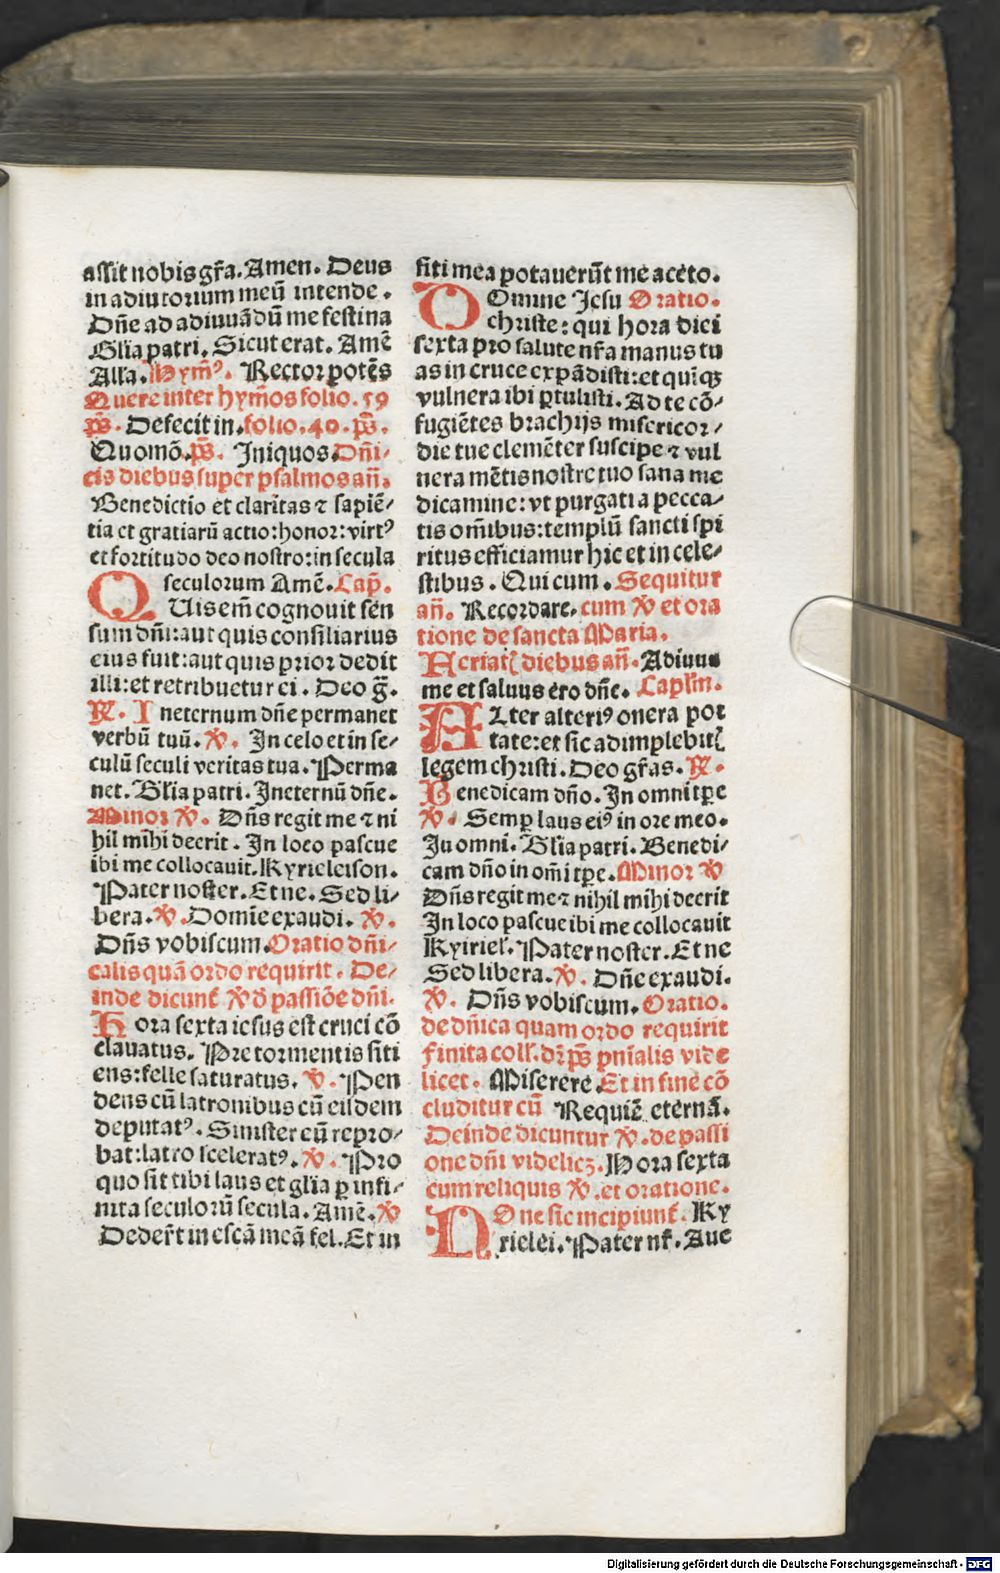 assit nobis gr̃a. Amen. Deus
in adiutorium meũ intende.
Dñe ad adiuuãdũ me festina
Glĩa patri. Sicut erat. Amẽ
Alla. Hymꝰ. Rector potẽs
Quere inter hym̃os folio. 59
p̃s. Defecit in. folio. 40. p̃s.
Quomõ. p̃s. Iniquos. Dñi⸗
cis diebus super psalmos añ.
Benedictio et claritas ⁊ sapiẽ⸗
tia et gratiarũ actio: honor: virtꝰ
et fortitudo deo nostro: in secula
seculorum Amẽ. Cap̃.
QUis em̃ cognouit sen
sum dñi: aut quis consiliarius
eius fuit: aut quis prior dedit
illi: et retribuetur ei. Deo g̃.
℟. Ineternum dñe permanet
verbũ tuũ. ℣. In celo et in se⸗
culũ seculi veritas tua. Perma
net. Glĩa patri. Ineternũ dñe.
Minor ℣. Dñs regit me ⁊ ni
hil mihi deerit. In loco pascue
ibi me collocauit. Kyrieleison.
Pater noster. Et ne. Sed li⸗
bera. ℣. Domĩe exaudi. ℣.
Dñs vobiscum. Oratio dñi⸗
calis quã ordo requirit. De⸗
inde dicunt̃ ℣ đ passiõe dñi.
Hora sexta iesus est cruci cõ
clauatus. Pre tormentis siti
ens: felle saturatus. ℣. Pen
dens cũ latronibus cũ eisdem
deputatꝰ. Sinister cũ repro⸗
bat: latro sceleratꝰ. ℣. Pro
quo sit tibi laus et glĩa ꝑ infi⸗
nita seculorũ secula. Amẽ. ℣
Eder̃t in escã meã fel. Et in
siti mea potauerũt me aceto.
DOmine Jesu Oratio.
christe: qui hora diei
sexta pro salute nr̃a manus tu
as in cruce expãdisti: et quĩqꝫ
vulnera ibi ꝑtulisti. Ad te cõ⸗
fugiẽtes brachijs misericor⸗
die tue clemẽter suscipe ⁊ vul
nera mẽtis nostre tuo sana me
dicamine: vt purgati a pecca⸗
tis om̃ibus: templũ sancti spi
ritus efficiamur hic et in cele⸗
stibus. Qui cum. Sequitur
añ. Recordare. cum ℣ et ora
tione de sancta Maria.
Feriatꝭ diebus añ. Adiuua
me et saluus ero dñe. Caplm̃.
ALter alteriꝰ onera por
tate: et sic adimplebitꝭ
legem christi. Deo gr̃as. ℟.
Benedicam dño. In omni tp̃e
℣. Semꝑ laus eiꝰ in ore meo.
In omni. Glĩa patri. Benedi⸗
cam dño in om̃i tp̃e. Minor ℣
Dñs regit me ⁊ nihil mihi deerit
In loco pascue ibi me collocauit
Kyiriel̃. Pater noster. Et ne
Sed libera. ℣. Dñe exaudi.
℣. Dñs vobiscum. Oratio.
de dñica quam ordo requirit
Finita coll̃. dr̃ p̃s pnĩalis vide
licet. Miserere. Et in fine cõ
cluditur cũ Requiẽ eternã.
Deinde dicuntur ℣. de passi
one dñi videlicꝫ. Hora sexta
cum reliquis ℣. et oratione.
DOne sic incipiunt̃. Ky
rielei. Pater nr̃. Aue
Digitalisierung gefördert durch die Deutsche Forschungsgemeinschaft - DFG